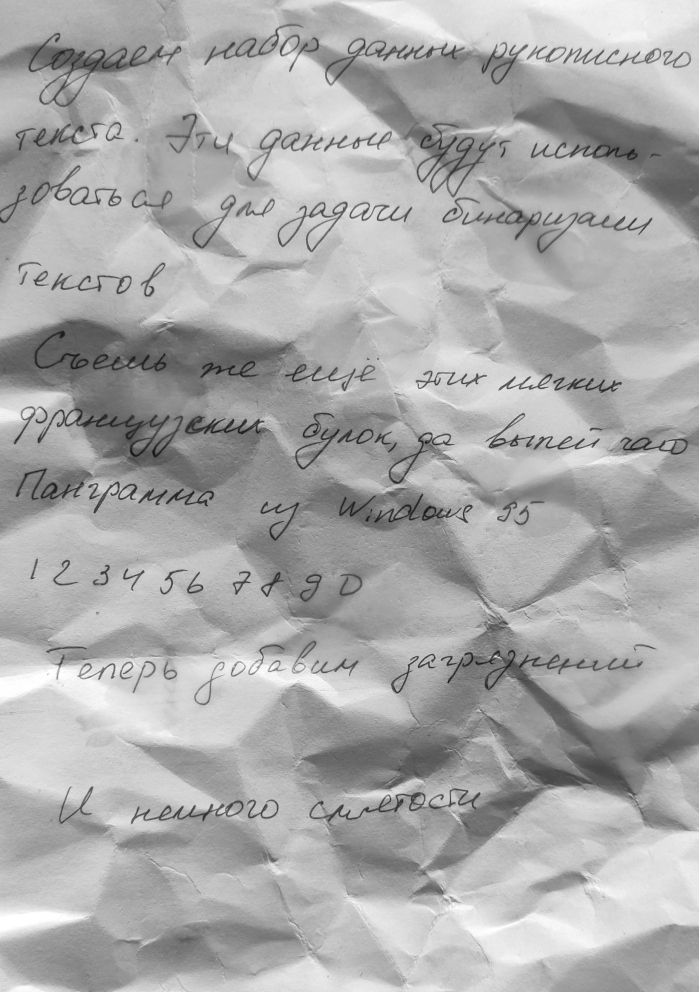 Создаем набор данных рукописного
текста. Эти данные будут исполь-
зоваться для задачи бинаризации
текстов
Съешь же ещё этих мягких
французских булок, да выпей чаю
Панграмма из Windows 95
1 2 3 4 5 6 7 8 9 0
Теперь добавим загрязнений
И немного смятости